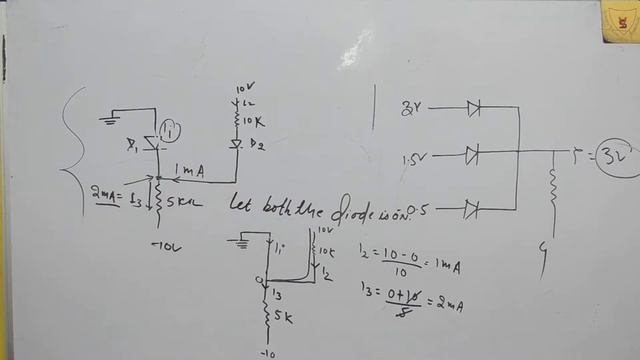 10V
I2
10K
D1
I1
D2
1mA
2mA = I3
5KΩ
-10V
Let both the Diode is on.
10V
10K
I1
I2
I3
5K
-10
I2 = 10-0/10 = 1mA
I3 = 0+10/5 = 2mA
1.5V
0.5
= 3V